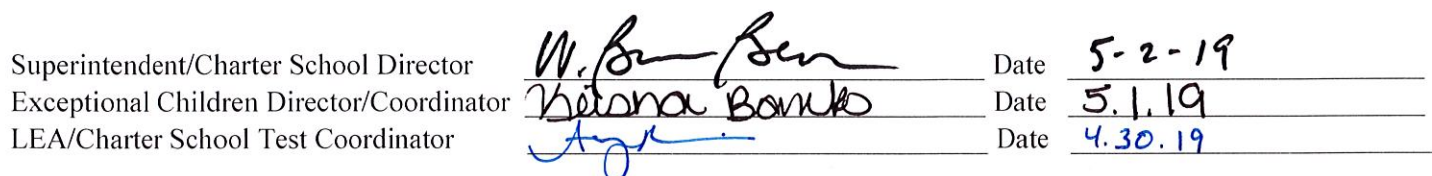 Superintendent/Charter School Director W. Date 5-2-19
Exceptional Children Director/Coordinator Keisha Banks Date 5.1.19
LEA/Charter School Test Coordinator Date 4.30.19